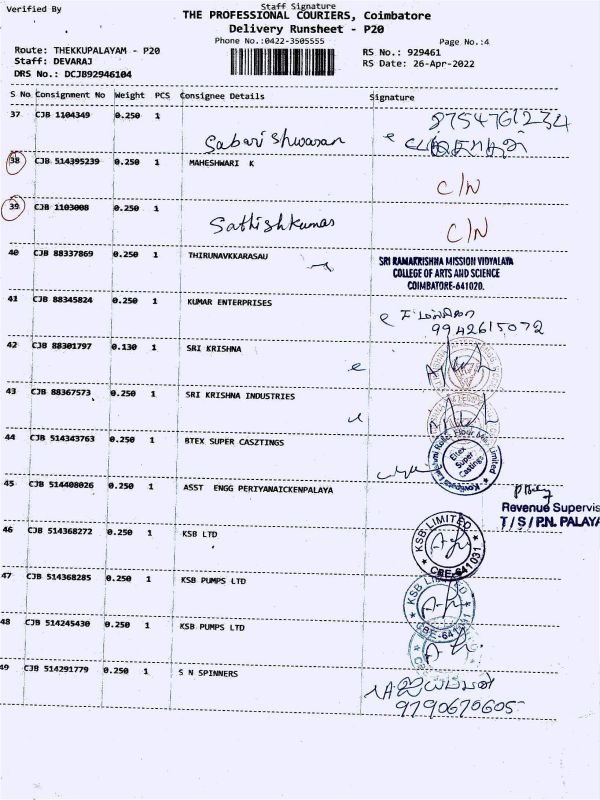 Verified By
Staff Signature
THE PROFESSIONAL COURIERS, Coimbatore
Delivery Runsheet - P20
Phone No.:0422-3505555
Page No.:4
Route: THEKKUPALAYAM - P20
RS No.: 929461
Staff: DEVARAJ
RS Date: 26-Apr-2022
DRS No.: DCJB92946104
S No Consignment No Weight PCS Consignee Details Signature
37 CJB 1104349 0.250 1 Sabarishwaran 8754761234
38 CJB 514395239 0.250 1 MAHESHWARI K C/N
39 CJB 1103008 0.250 1 Sathishkumar C/N
40 CJB 88337869 0.250 1 THIRUNAVKKARASAU
SRI RAMAKRISHNA MISSION VIDYALAYA
COLLEGE OF ARTS AND SCIENCE
COIMBATORE-641020.
41 CJB 88345824 0.250 1 KUMAR ENTERPRISES
9942615072
42 CJB 88301797 0.130 1 SRI KRISHNA
43 CJB 88367573 0.250 1 SRI KRISHNA INDUSTRIES
44 CJB 514343763 0.250 1 BTEX SUPER CASZTINGS
Super
Castings
45 CJB 514408026 0.250 1 ASST ENGG PERIYANAICKENPALAYA
Revenue Supervis
T/S/P.N. PALAYA
46 CJB 514368272 0.250 1 KSB LTD
KSB LIMITED
CBE-641 031
47 CJB 514368285 0.250 1 KSB PUMPS LTD
48 CJB 514245430 0.250 1 KSB PUMPS LTD
49 CJB 514291779 0.250 1 S N SPINNERS
9790670605